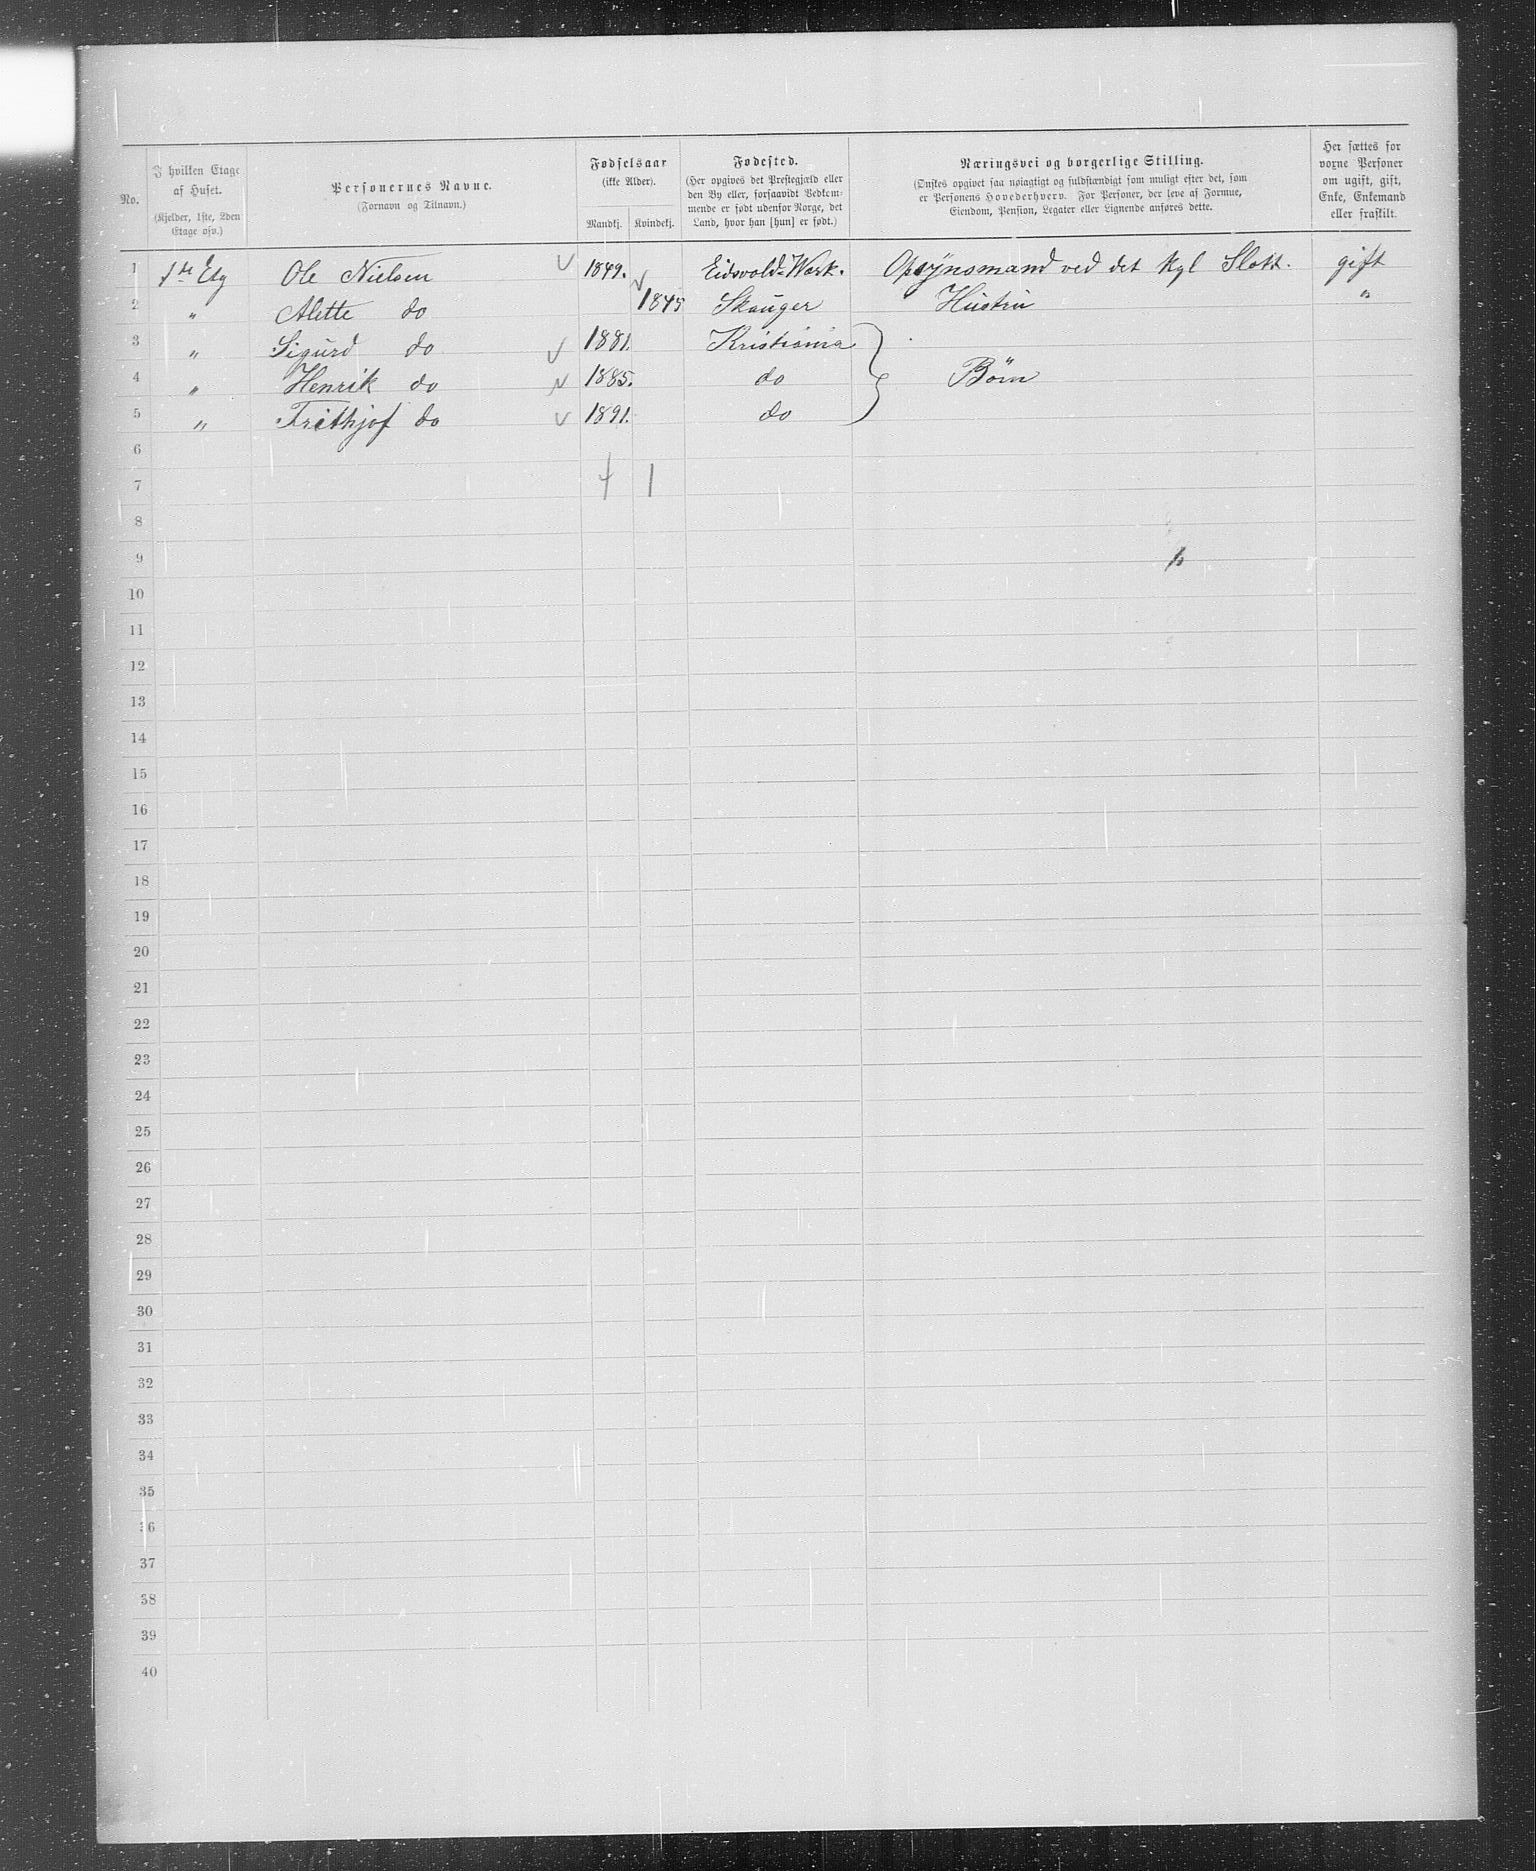 No.
I hvilken Etage af Huset.
(Kjelder, 1ste, 2den Etage osv.)
Personernes Navne.
(Fornavn og Tilnavn.)
Fødselsaar
(ikke Alder).
Mandkj. Kvindekj.
Fødested.
(Her opgives det Prestegjæld eller
den By eller, forsaavidt Vedkom-
mende er født udenfor Norge, det
Land, hvor han [hun] er født.)
Næringsvei og borgerlige Stilling.
(Ønskes opgivet saa nøiagtigt og fuldstændigt som muligt efter det, som
er Personens Hovederhverv. For Personer, der leve af Formue,
Eiendom, Pension, Legater eller Lignende anføres dette.
Her sættes for
voxne Personer
om ugift, gift,
Enke, Enkemand
eller fraskilt.
1 1ste Etg Ole Nielsen 1849. Eidsvold-Værk. Opsynsmand ved det kgl Slott. gift
2 " Alette do 1845 Skauger Hustru "
3 " Sigurd do 1881. Kristiania
4 " Henrik do 1885. do Börn
5 " Frithjof do 1891. do
6
7 4 1
8
9
10
11
12
13
14
15
16
17
18
19
20
21
22
23
24
25
26
27
28
29
30
31
32
33
34
35
36
37
38
39
40